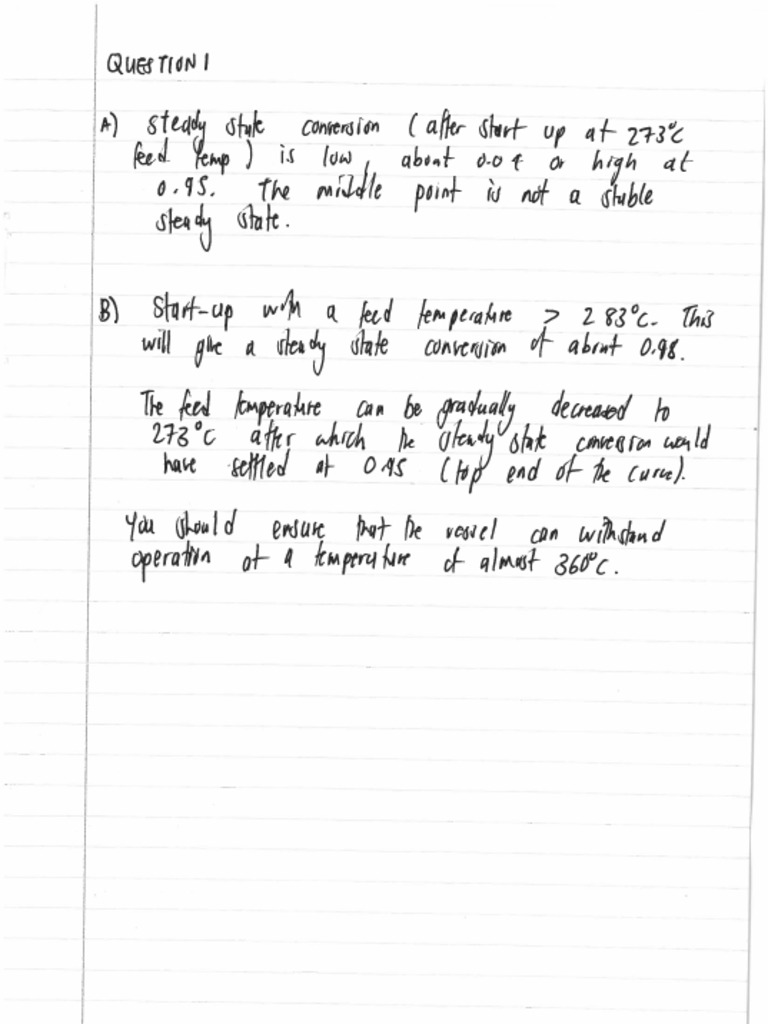 QUESTION 1
A) steady state conversion ( after start up at 273°C
feed temp ) is low, about 0.04 or high at
0.95. The middle point is not a stable
steady state.
B) Start-up with a feed temperature > 283°C. This
will give a steady state conversion of about 0.98.
The feed temperature can be gradually decreased to
273°C after which the steady state conversion would
have settled at 0.95 (top end of the curve).
You should ensure that the vessel can withstand
operation at a temperature of almost 360°C.